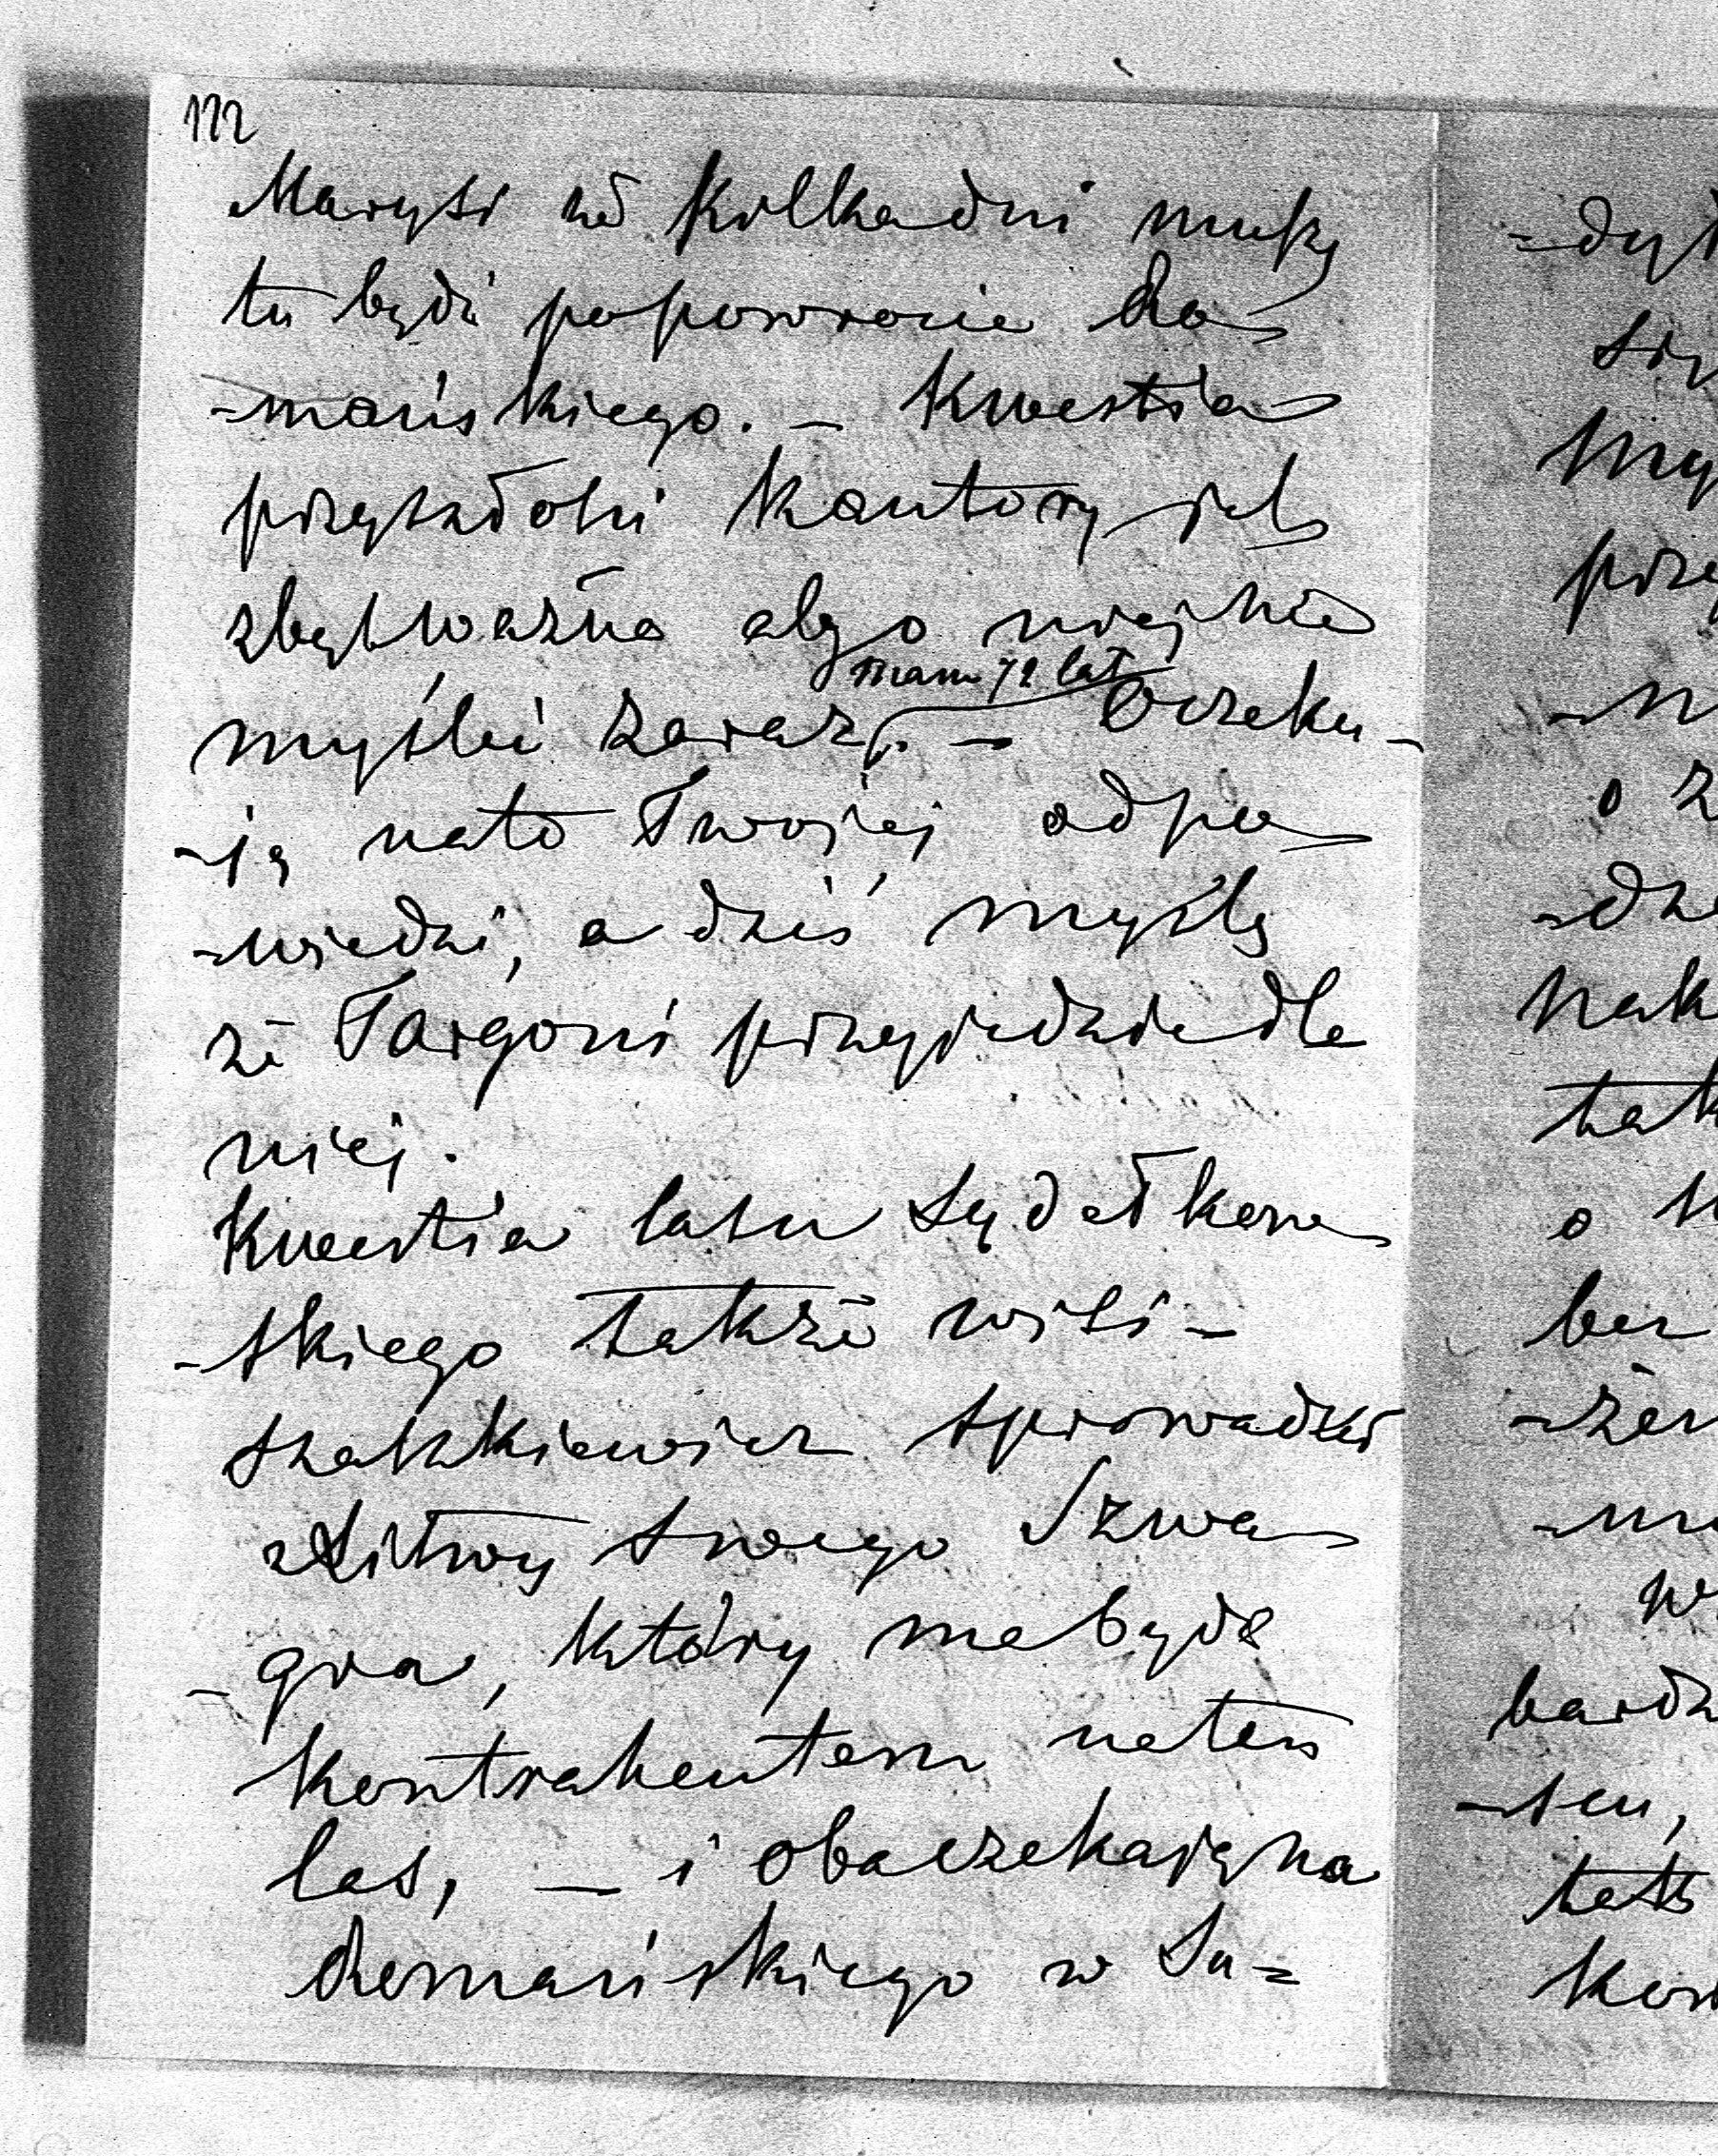 122
Marysi za kilka dni muszę
tu bydź po powrocie Ro-
-mańskiego. – Kwestia
przyszłości kantory jest
zbyt ważna aby o niej nie
mam 72 lat
myśleć zaraz. – Oczeku-
-ię na to Twojej odpo-
-wiedzi, a dziś myślę
że Targoni przyjedzie dla
niej.
Kwestia lasu Sydałkow-
-skiego także wisi –
Szaszkiewicz sprowadził
z Litwy swego Szwa-
-gra, który ma bydź
kontrahentem na ten
las, – i oba czekają na
Romańskiego w Su-
-dył
się
my
prze
-n
o z
-dze
nak
tak
o
bez
-żen
bardz
-sen,
tak
kon